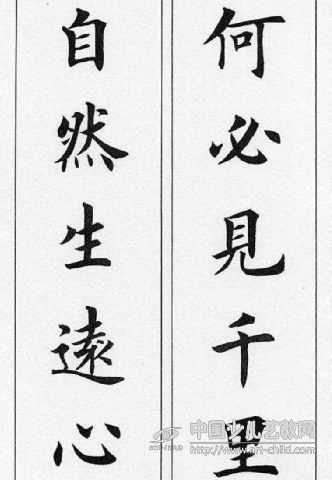 何必見千里
自然生遠心
中国少儿艺教网
http://www.art-child.com